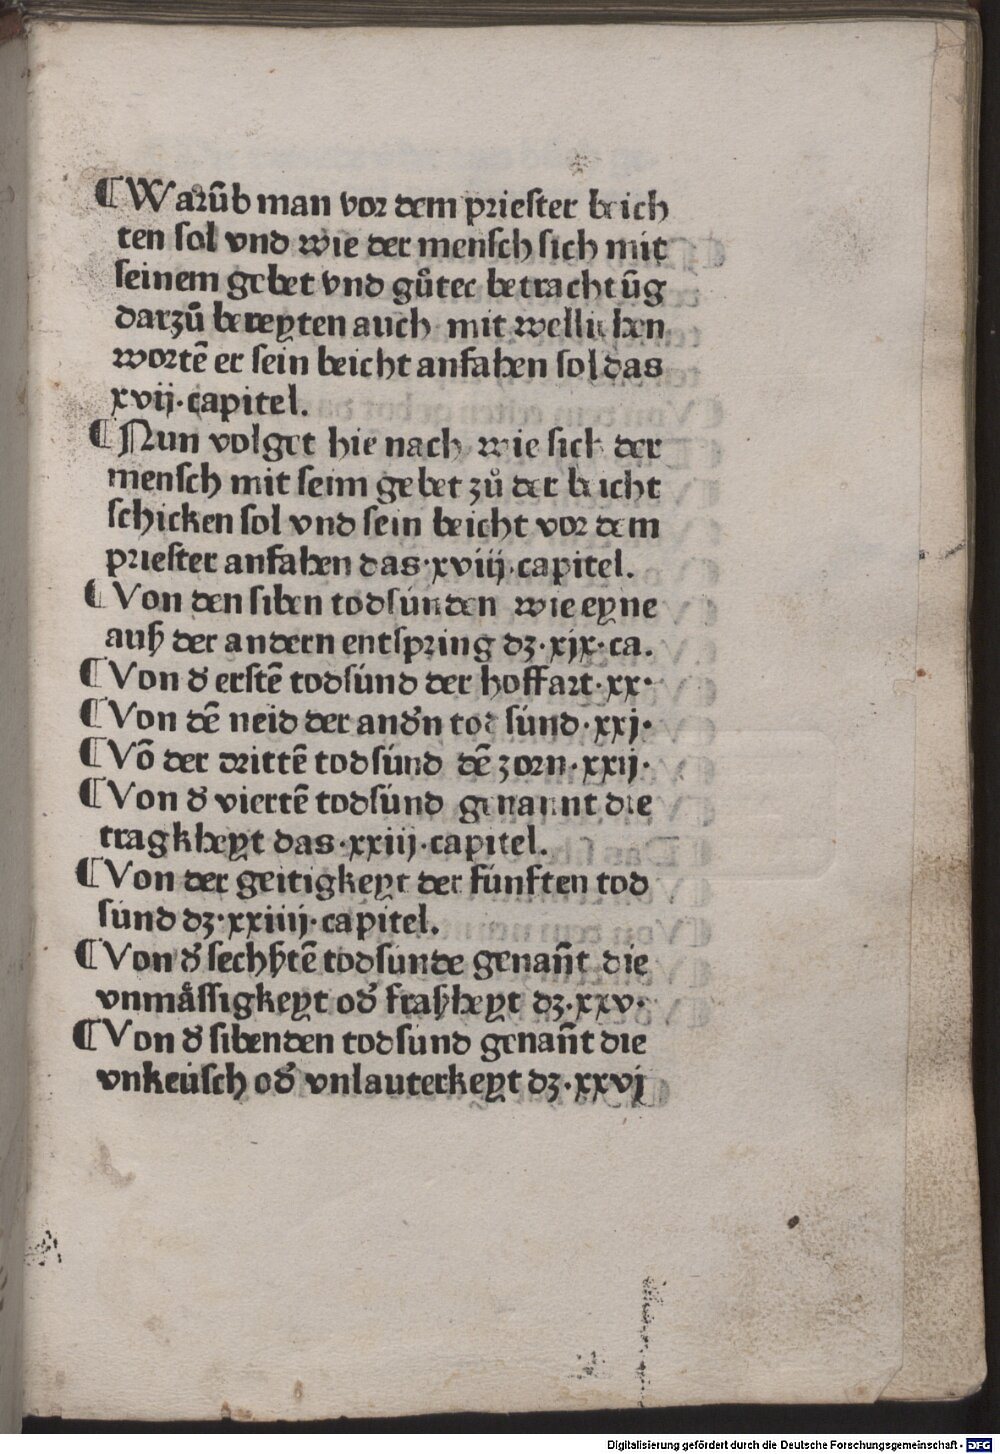 ¶Warũb man vor dem priester beich
ten sol vnd wie der mensch sich mit
seinem gebet vnd gůter betrachtũg
darzů bereyten auch mit wellichen
wortẽ er sein beicht anfahen sol das
xvij·capitel.
¶Nun volget hie nach wie sich der
mensch mit seim gebet zů der beicht
schicken sol vnd sein beicht vor dem
priester anfahen das·xviij·capitel.
¶Von den siben todsúnden wie eyne
auß der andern entspring dz·xjx·ca.
¶Von d̕ erstẽ todsúnd der hoffart·xx·
¶Von dẽ neid der and̕n tod súnd·xxj·
¶Võ der drittẽ todsúnd dẽ zorn·xxij·
¶Von d̕ viertẽ todsúnd genannt die
tragkheyt das·xxiij·capitel.
¶Von der geitigkeyt der fúnften tod
súnd dz·xxiiij·capitel.
¶Von d̕ sechßtẽ todsunde genañt die
vnmåssigkeyt od̕ fraßheyt dz·xxv·
¶Von d̕ sibenden todsund genañt die
vnkeúsch od̕ vnlauterkeyt dz·xxvj
Digitalisierung gefördert durch die Deutsche Forschungsgemeinschaft - DFG